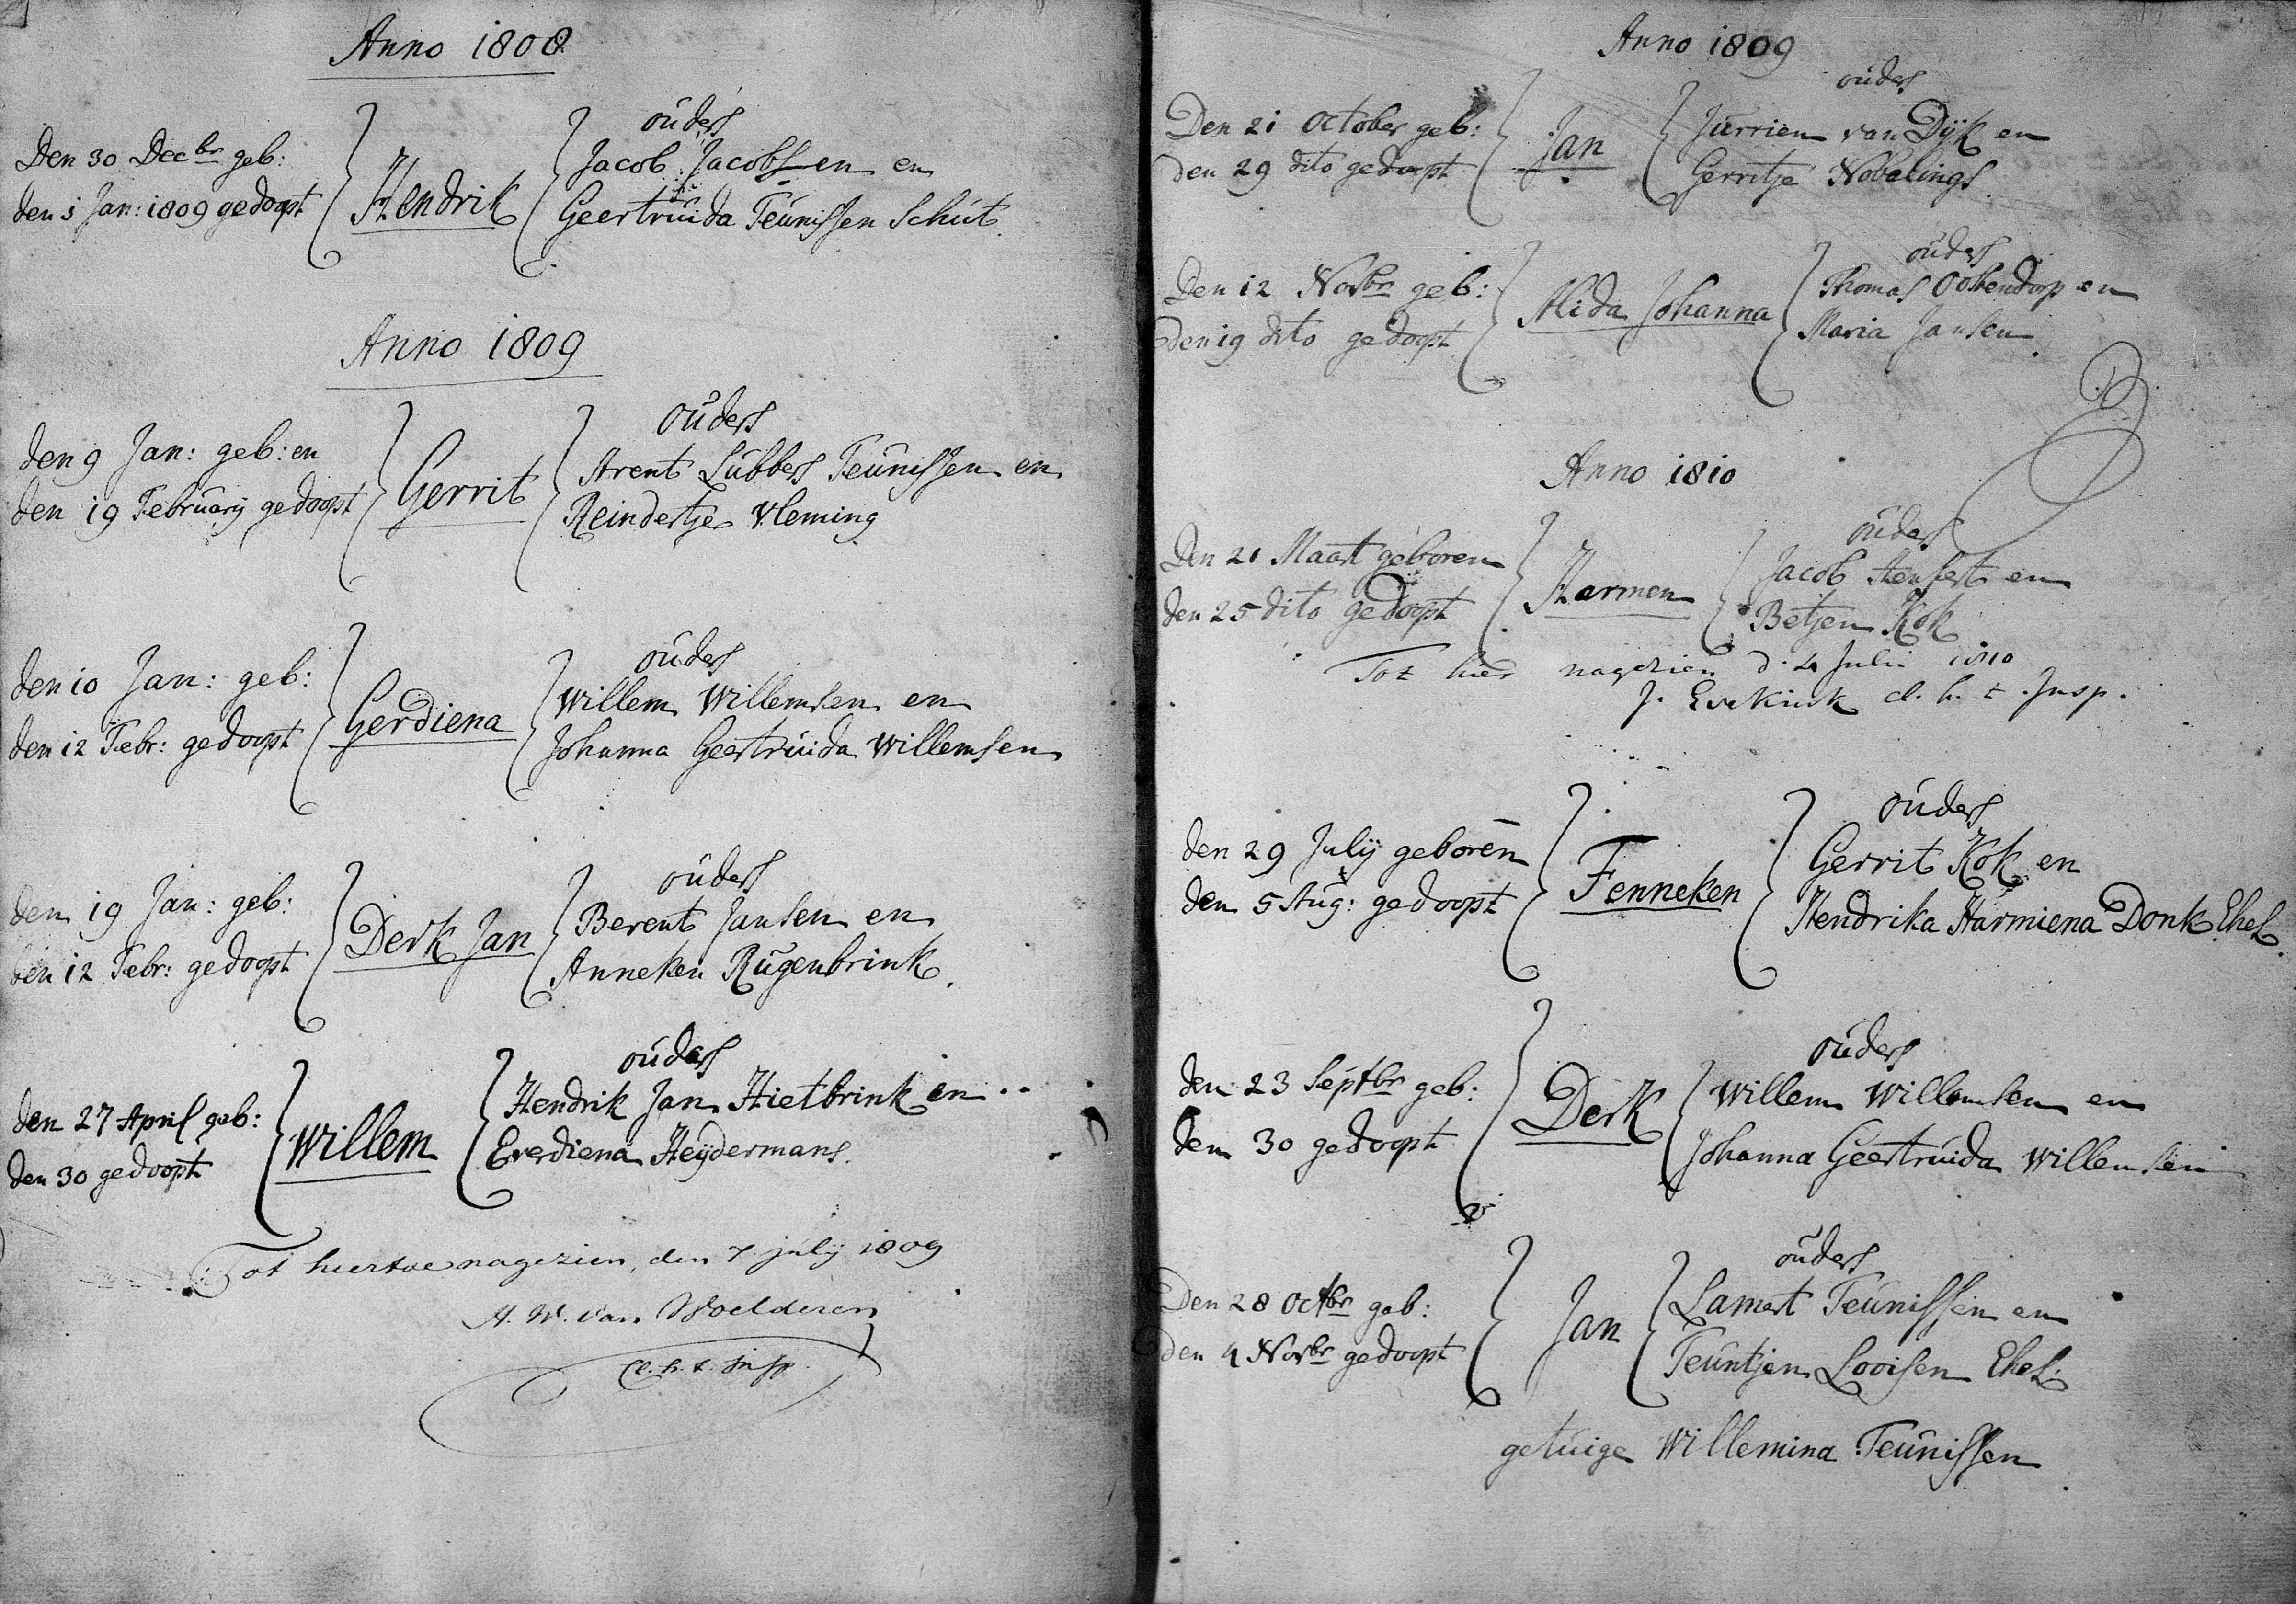 Anno 1808
ouders
Den 30 Decbr geb:
den 1 Jan: 1809 gedoopt
Hendrik
Jacob Jacobsen en
Geertruida Teunissen Schut
Anno 1809
ouders
den 9 Jan: geb: en
den 19 February gedoopt
Gerrit
Arent Lubbers Teunissen en
Reindertje Vleming
ouders
den 10 Jan: geb:
den 12 Febr: gedoopt
Gerdiena
Willem Willemsen en
Johanna Geertruida Willemsen
ouders
den 19 Jan: geb:
den 12 Febr: gedoopt
Derk Jan
Berent Jansen en
Anneken Rugenbrink.
ouders
den 27 April geb:
den 30 gedoopt
Willem
Hendrik Jan Hietbrink en
Everdiena Heydermans.
Tot hiertoe nagezien, den 7 july 1809
H. W. van Woelderen
Cl. h. t. Insp.
Anno 1809
ouders
Den 21 October geb:
den 29 dito gedoopt
Jan
Jurrien van Dyk en
Gerritje Nobelings
ouders
Den 12 Novbr geb:
den 19 dito gedoopt
Alida Johanna
Thomas Oostendorp en
Maria Jansen
Anno 1810
ouders
Den 21 Maart geboren
den 25 dito gedoopt
Harmen
Jacob en
Betjen Kok
Tot hier nagezien d. 4 Julii 1810
J. cl. h. t. Insp.
ouders
den 29 July geboren
den 5 Aug: gedoopt
Fenneken
Gerrit Kok en
Hendrika Harmiena Donk Ehel.
ouders
den 23 Septbr geb:
den 30 gedoopt
Derk
Willem Willemsen en
Johanna Geertruida Willemsen
ouders
Den 28 Octbr geb:
den 4 Novbr gedoopt
Jan
Lamert Teunissen en
Teuntjen Looisen Ehel:
getuige Willemina Teunissen